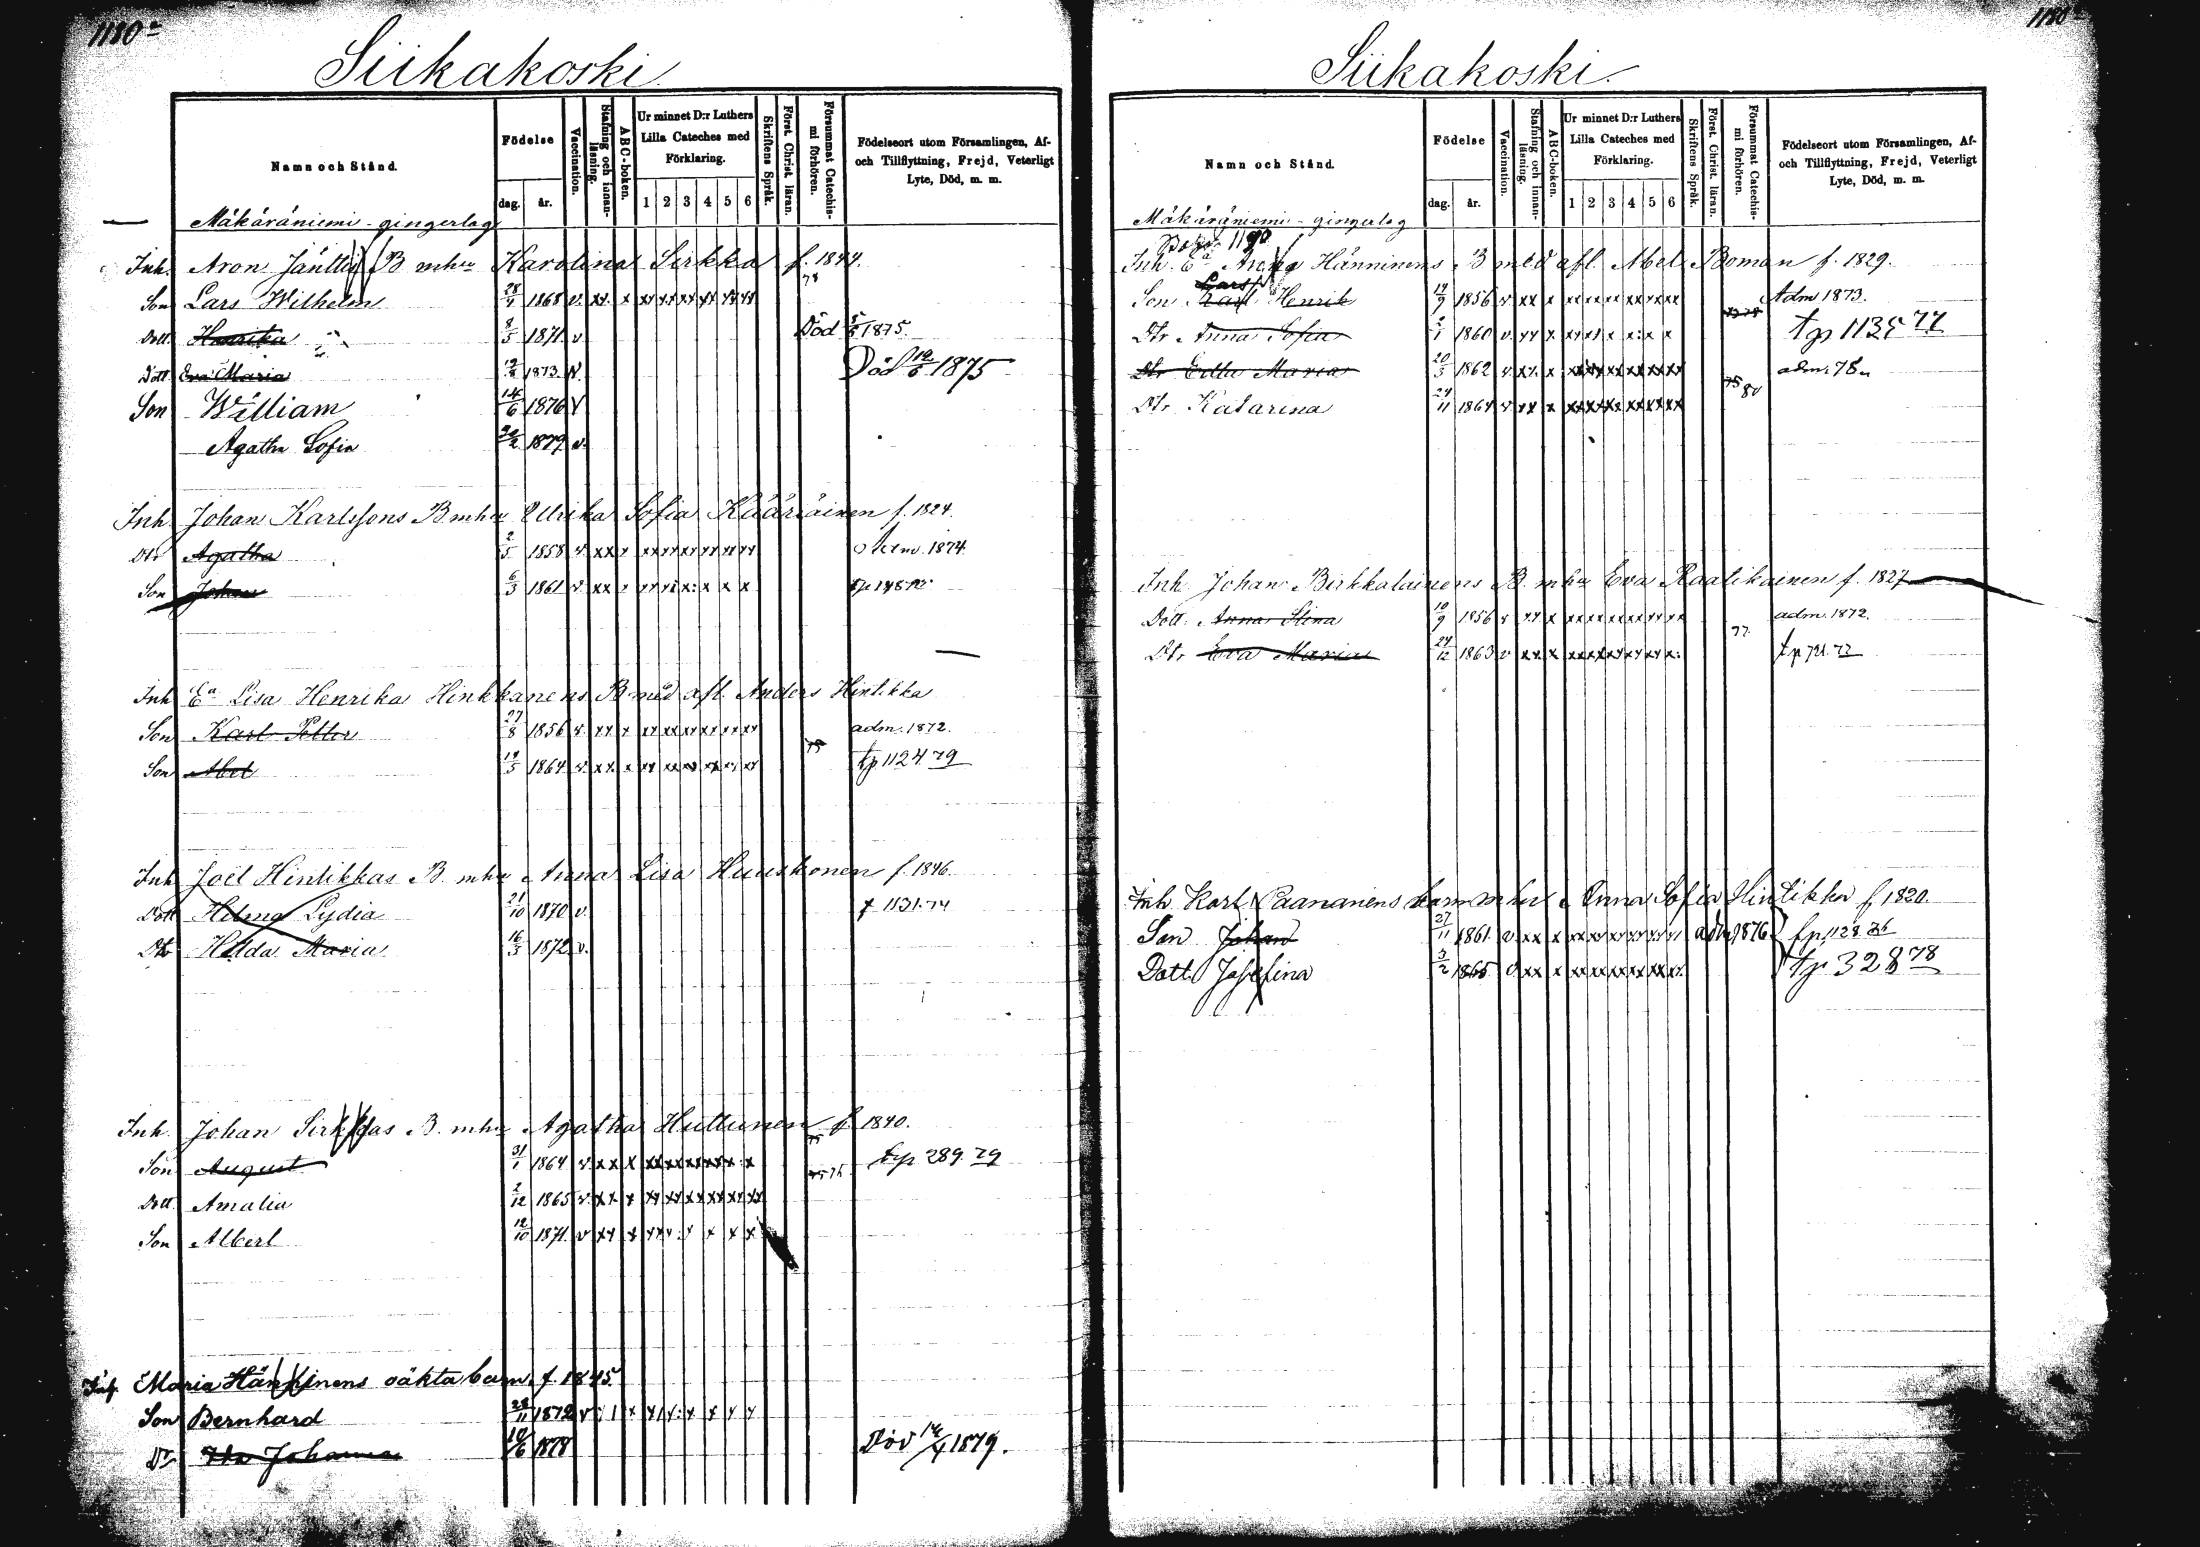 1180
Siikakoski
Namn och Stånd.
Födelse
dag.
år.
Vaccination.
Stafning och innanläsning.
ABC-boken.
Ur minnet D:r Luthers Lilla Cateches med Förklaring.
1 2 3 4 5 6
Skriftens Språk.
Först. Christ. läran.
Försummat Catechismi förhören.
Födelseort utom Församlingen, Af- och Tillflyttning, Frejd, Veterligt Lyte, Död, m. m.
Mäkäräniemi - gingerlag
Inh. Aron Jäntti B mhu Karolina Sirkka f. 1844.
Son Lars Wilhelm 1868 v. xx. x xx xx xx xx xx xx 78
Dott. Henrika 8/5 1871. v Död 5/6 1875.
Dott Eva Maria 1873. v. Död 12/6 1875
Son William 14/6 1876 v
Agatha Sofia 1879. v.
Inh. Johan Karlssons B mhu Ulrika Sofia Kääriäinen f. 1824.
Dtr Agatha 2/5 1858 v. xx x xx xx xx xx xx xx Adm. 1874.
Son Johan 6/3 1861 v. xx x xx xx x: x x x
Inh Ea Lisa Henrika Hinkkanens B med afl. Anders Hintikka
Son Karl Petter 27/8 1856 v. xx x xx xx xx xx xx xx adm. 1872.
Son Abel 19/5 1864 v. xx. x xx xx xx xx xx xx 75 tp 1124 79
Inh Joel Hintikkas B. mhu Anna Lisa Huuskonen f. 1846.
Dott Hilma Lydia 21/10 1870 v. f 1131.74
Dtr Hilda Maria 16/3 1872 v.
Inh. Johan Sirkkas B. mhu Agatha Huttunen f. 1840.
Son August 31/1 1864 v. xx x xx xx xx xx x x tp 289. 79
Dott. Amalia 2/12 1865 v. xx x xx xx xx xx xx xx
Son Albert 12/10 1871. v xx x xx x: x x x x
Inh. Maria Hänninens oäkta barn. f. 1845.
Son Bernhard 28/11 1872
Dr Ida Johanna 10/6 1878 Död 14/4 1879.
1180
Siikakoski.
Namn och Stånd.
Födelse
dag.
år.
Vaccination.
Stafning och innanläsning.
ABC-boken.
Ur minnet D:r Luthers Lilla Cateches med Förklaring.
1 2 3 4 5 6
Skriftens Språk.
Först. Christ. läran.
Försummat Catechismi förhören.
Födelseort utom Församlingen, Af- och Tillflyttning, Frejd, Veterligt Lyte, Död, m. m.
Mäkäräniemi - gingerlag
1190
Inh. Ea Anna Hänninens B med afl. Abel Boman f. 1829.
Lars
Son Karl Henrik 19/9 1856 v xx x xx xx xx xx xx xx Adm 1873.
Dtr Anna Sofia 1860 v. xx x
Dtr Edla Maria 20/3 1862 v. xx. x xx xx xx xx xx xx adm. 78
Dtr Katarina 24/11 1864 v xx x xx xx xx xx xx xx 80
Inh. Johan Birkkalainens B. mhu Eva Raatikainen f. 1827
Dott. Anna Stina 10/9 1856 v xx x xx xx xx xx xx xx adm. 1872.
Dtr Eva Maria 24/12 1863 v xx x xx xx xx xx xx x: 77.
Inh. Karl Paananens barn mhu Anna Sofia Hintikka f. 1820.
Son Johan 27/11 1861. v. xx x xx xx xx xx xx xx adm 1876. tp. 1128 76
Dott Josefina 3/2 1865 v xx x xx xx xx xx xx xx. tp. 328 78